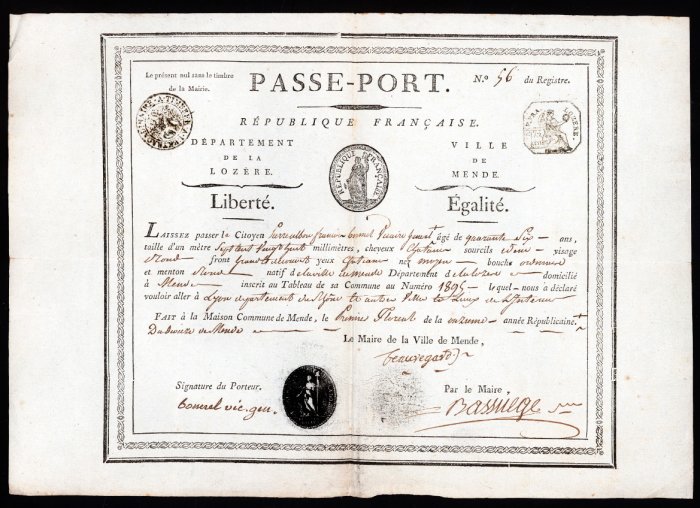 Le présent nul sans le timbre
de la Mairie.
PASSE-PORT.
N.º 56 du Registre.
RÉPUBLIQUE FRANÇAISE.
DÉPARTEMENT
DE LA
LOZÈRE.
RÉPUBLIQUE FRANÇAISE.
VILLE
DE
MENDE.
Liberté.
Égalité.
LAISSEZ passer le Citoyen âgé de quarante Six ans,
taille d'un mètre Sept cent vingt huit millimètres, cheveux Chatains sourcils idem visage
Rond front yeux Chatains nez moyen bouche ordinaire
et menton Rond natif de la ville de Mende Département de la Lozère domicilié
à Mende inscrit au Tableau de sa Commune au Numéro 1895 lequel nous a déclaré
vouloir aller à Lyon département du Rhône et autres villes de l'intérieur
FAIT à la Maison Commune de Mende, le Premier Floreal de la onzieme année Républicaine
de Mende
Le Maire de la Ville de Mende,
Beauregard
Signature du Porteur,
vic. gen.
Par le Maire,